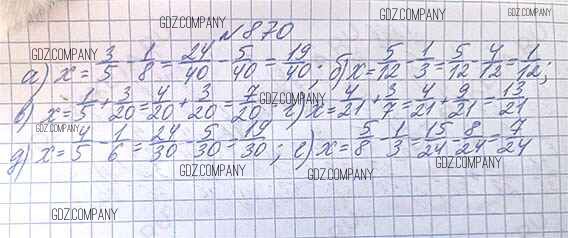 GDZ.COMPANY
GDZ.COMPANY GDZ.COMPANY
№870
GDZ.COMPANY
а) x = 3/5 - 1/8 = 24/40 - 5/40 = 19/40; б) x = 5/12 - 1/3 = 5/12 - 4/12 = 1/12;
GDZ.COMPANY
в) x = 1/5 + 3/20 = 4/20 + 3/20 = 7/20; г) x = 4/21 + 3/7 = 4/21 + 9/21 = 13/21
GDZ.COMPANY
д) x = 4/5 - 1/6 = 24/30 - 5/30 = 19/30; е) x = 5/8 - 1/3 = 15/24 - 8/24 = 7/24
GDZ.COMPANY GDZ.COMPANY GDZ.COMPANY
GDZ.COMPANY